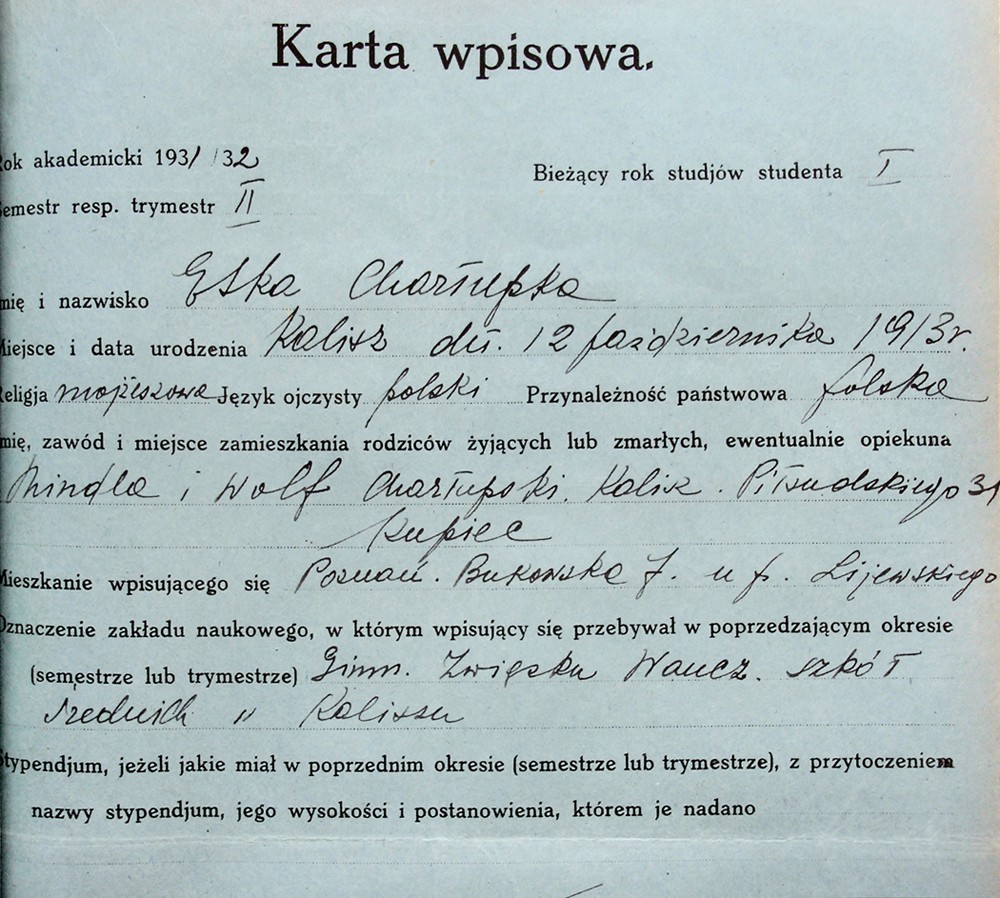 Karta wpisowa.
ok akademicki 1931/32
Bieżący rok studjów studenta I
emestr resp. trymestr II
mię i nazwisko Estka Charłupska
iejsce i data urodzenia Kalisz dn. 12 października 1913 r.
eligja mojżeszowa Język ojczysty polski Przynależność państwowa polska
mię, zawód i miejsce zamieszkania rodziców żyjących lub zmarłych, ewentualnie opiekuna
Mindla i Wolf Charłupski. Kalisz. Piłsudskiego 31
Kupiec
ieszkanie wpisującego się Poznań. Bukowska 7. u p. Lijewskiego
znaczenie zakładu naukowego, w którym wpisujący się przebywał w poprzedzającym okresie
(semestrze lub trymestrze) Gimn. Związku Naucz. szkół
średnich w Kaliszu
typendjum, jeżeli jakie miał w poprzednim okresie (semestrze lub trymestrze), z przytoczeniem
nazwy stypendjum, jego wysokości i postanowienia, którem je nadano